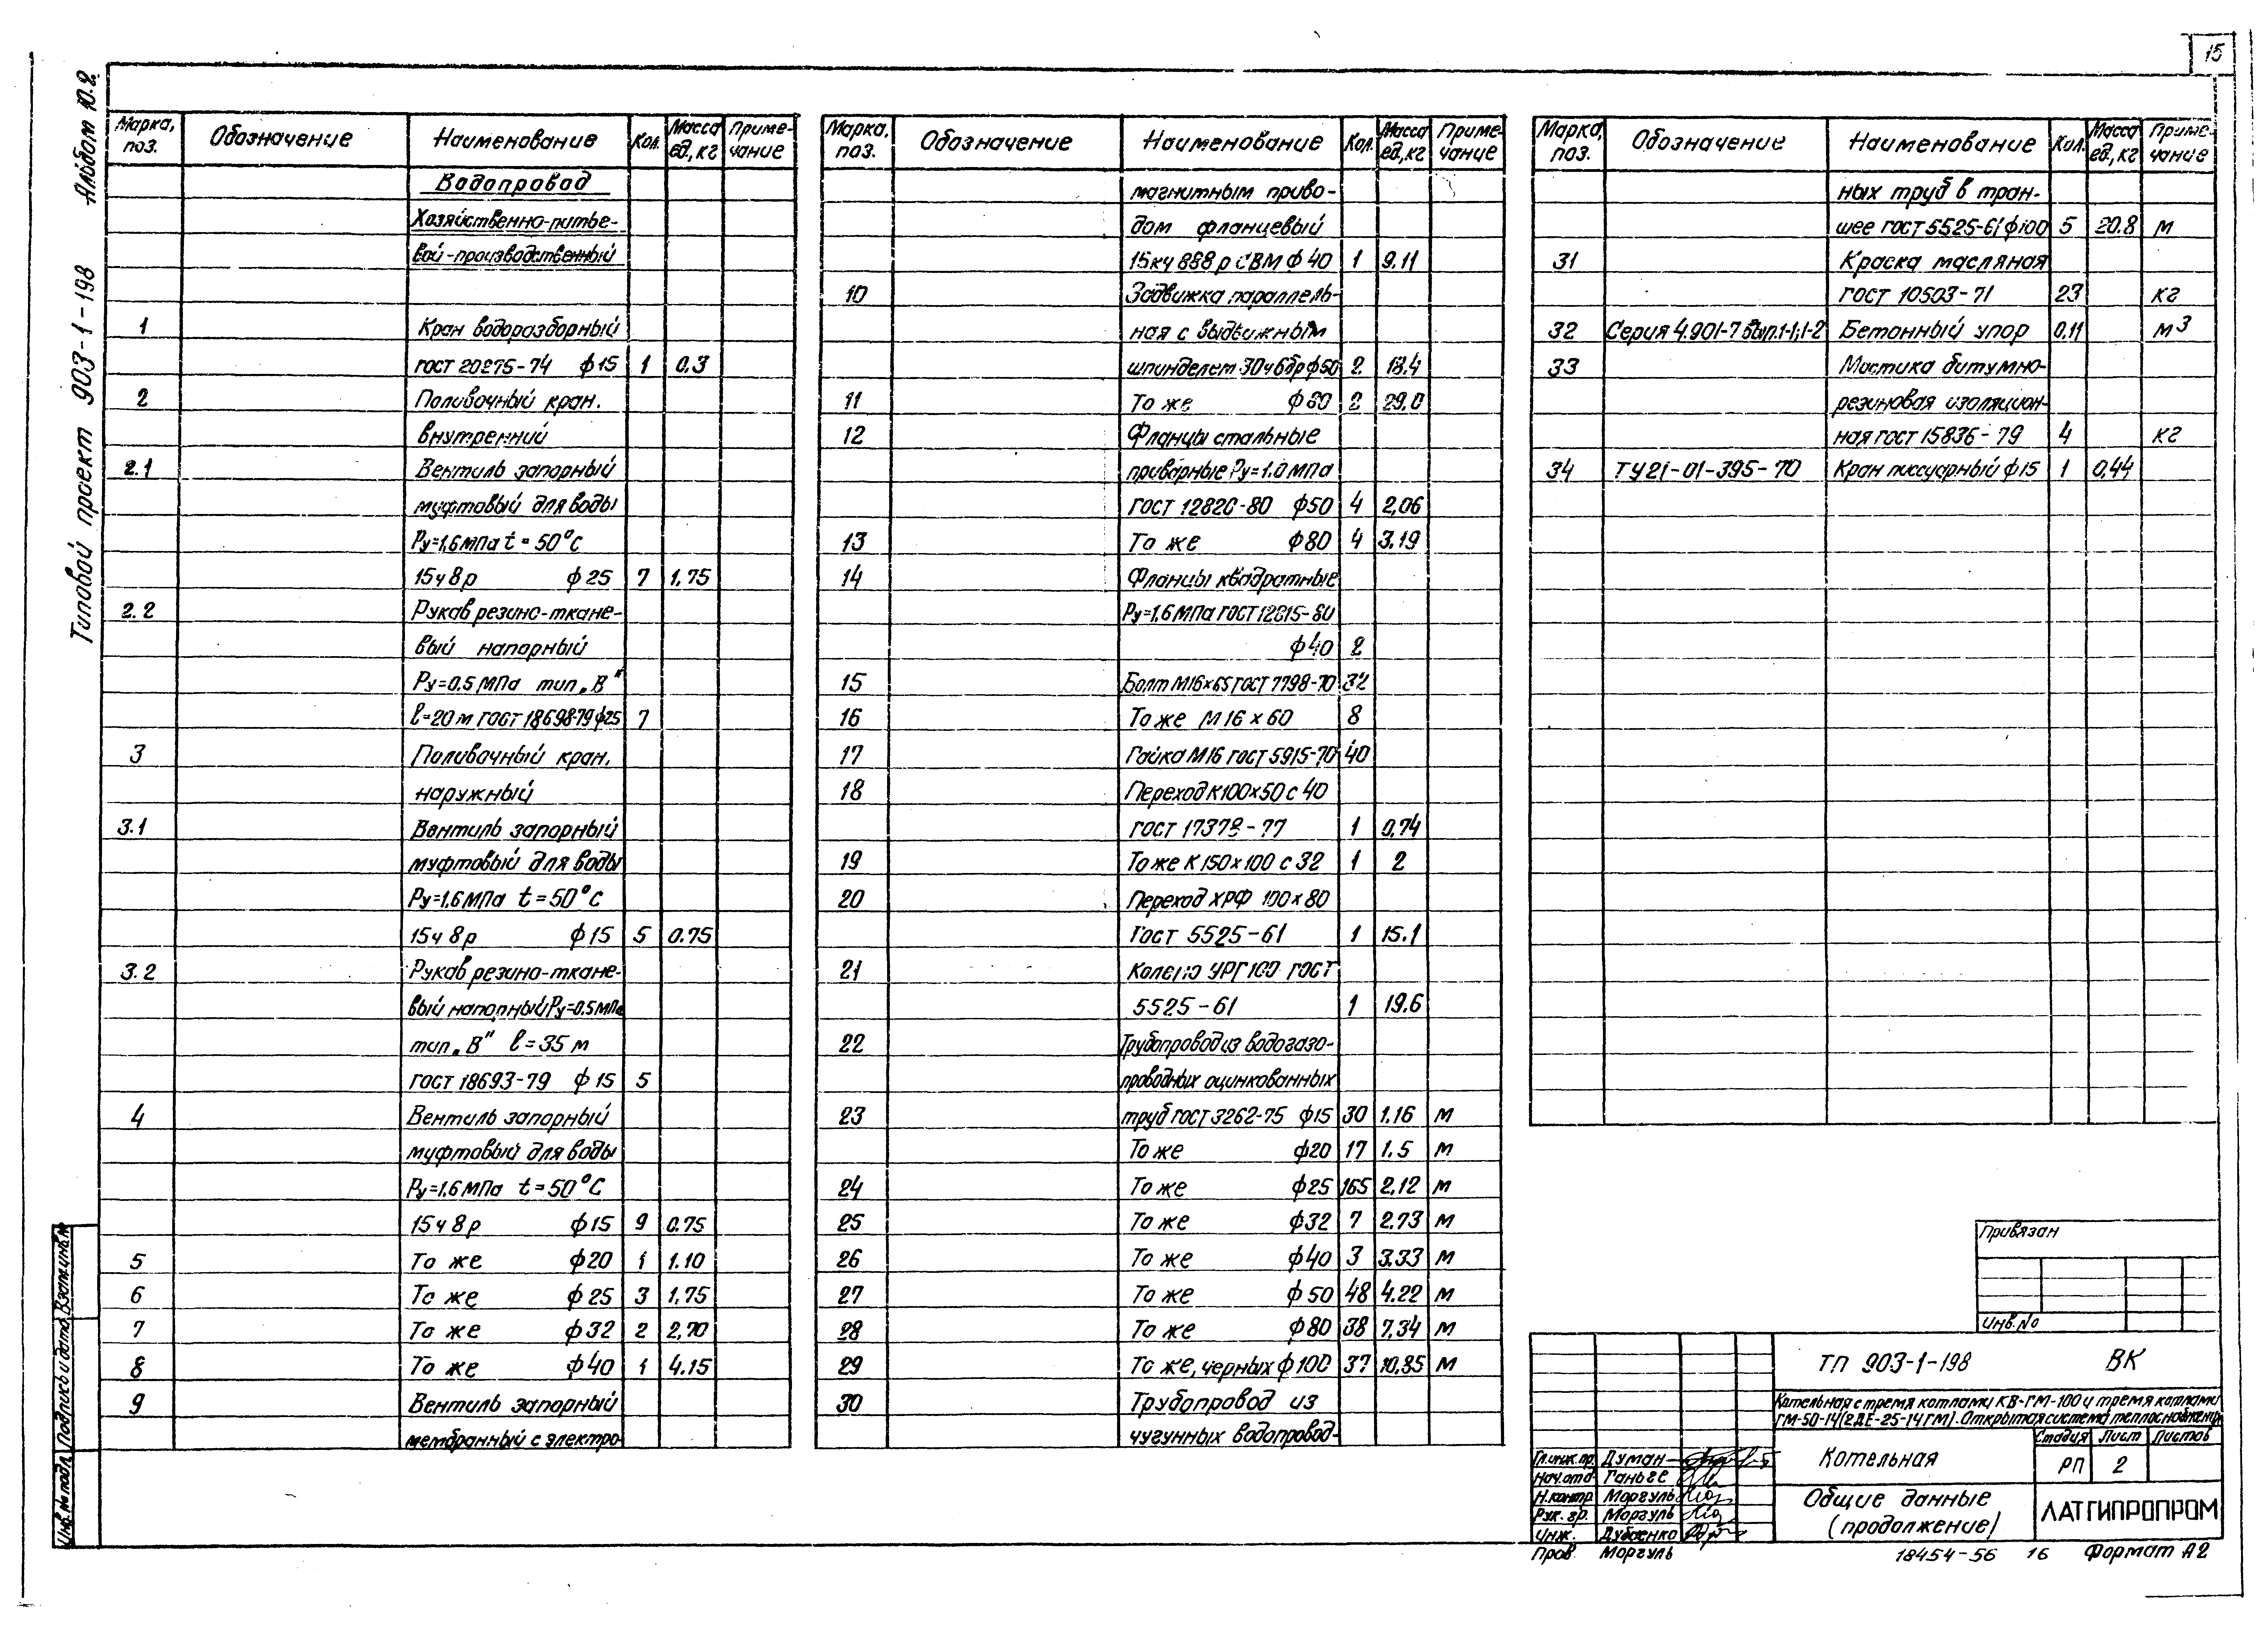 15
Альбом 10.8
Типовой проект 903-1-198
Марка, поз. Обозначение Наименование Кол. Масса ед., кг Приме- чание
Водопровод
Хозяйственно-питье-
вой-производственный
1 Кран водоразборный
ГОСТ 20275-74 ф15 1 0,3
2 Поливочный кран.
внутренний
2.1 Вентиль запорный
муфтовый для воды
Ру=1,6 МПа t=50°С
15ч8р ф25 7 1,75
2.2 Рукав резино-ткане-
вый напорный
Ру=0.5 МПа тип „В"
l=20 м ГОСТ 18698-79 ф25 7
3 Поливочный кран.
наружный
3.1 Вентиль запорный
муфтовый для воды
Ру=1,6 МПа t=50°С
15ч8р ф15 5 0.75
3.2 Рукав резино-ткане-
вый напорный Ру=0.5 МПа
тип „В" l=35 м
ГОСТ 18693-79 ф15 5
4 Вентиль запорный
муфтовый для воды
Ру=1,6 МПа t=50°С
15ч8р ф15 9 0.75
5 То же ф20 1 1.10
6 То же ф25 3 1,75
7 То же ф32 2 2,70
8 То же ф40 1 4.15
9 Вентиль запорный
мембранный с электро-
Марка, поз. Обозначение Наименование Кол. Масса ед., кг Приме- чание
магнитным приво-
дом фланцевый
15кч888р СВМ ф40 1 9.11
10 Задвижка параллель-
ная с выдвижным
шпинделем 30ч6бр ф50 2 18.4
11 То же ф80 2 29,0
12 Фланцы стальные
приварные Ру=1.0 МПа
ГОСТ 12820-80 ф50 4 2,06
13 То же ф80 4 3.19
14 Фланцы квадратные
Ру=1,6 МПа ГОСТ 12815-80
ф40 2
15 Болт М16×65 ГОСТ 7798-70 32
16 То же М16×60 8
17 Гайка М16 ГОСТ 5915-70 40
18 Переход К100×50 с 40
ГОСТ 17378-77 1 0,74
19 То же К150×100 с 32 1 2
20 Переход ХРФ 100×80
ГОСТ 5525-61 1 15.1
21 Колено УРГ100 ГОСТ
5525-61 1 19.6
22 Трубопровод из водогазо-
проводных оцинкованных
23 труб ГОСТ 3262-75 ф15 30 1.16 м
То же ф20 17 1.5 м
24 То же ф25 165 2,12 м
25 То же ф32 7 2.73 м
26 То же ф40 3 3.33 м
27 То же ф50 48 4.22 м
28 То же ф80 38 7,34 м
29 То же, черных ф100 37 10,85 м
30 Трубопровод из
чугунных водопровод-
Марка, поз. Обозначение Наименование Кол. Масса ед., кг Приме- чание
ных труб в тран-
шее ГОСТ 5525-61 ф100 5 20.8 м
31 Краска масляная
ГОСТ 10503-71 23 кг
32 Серия 4.901-7 Вып.1-1;1-2 Бетонный упор 0,11 м3
33 Мастика битумно-
резиновая изоляцион-
ная ГОСТ 15836-79 4 кг
34 ТУ21-01-395-70 Кран писсуарный ф15 1 0,44
Привязан
Инв.№
ТП 903-1-198 ВК
Котельная с тремя котлами КВ-ГМ-100 и тремя котлами
ГМ-50-14(2ДЕ-25-14ГМ). Открытая система теплоснабжения
Котельная
Стадия Лист Листов
РП 2
Общие данные
(продолжение)
ЛАТГИПРОПРОМ
Гл.инж.пр. Думан
Нач.отд Ганьге
Н.контр. Моргуль
Рук. гр. Моргуль
Инж. Дубаенко
Пров. Моргуль
18454-56 16 Формат А2
Инв.№подл. Подпись и дата Взам.инв.№